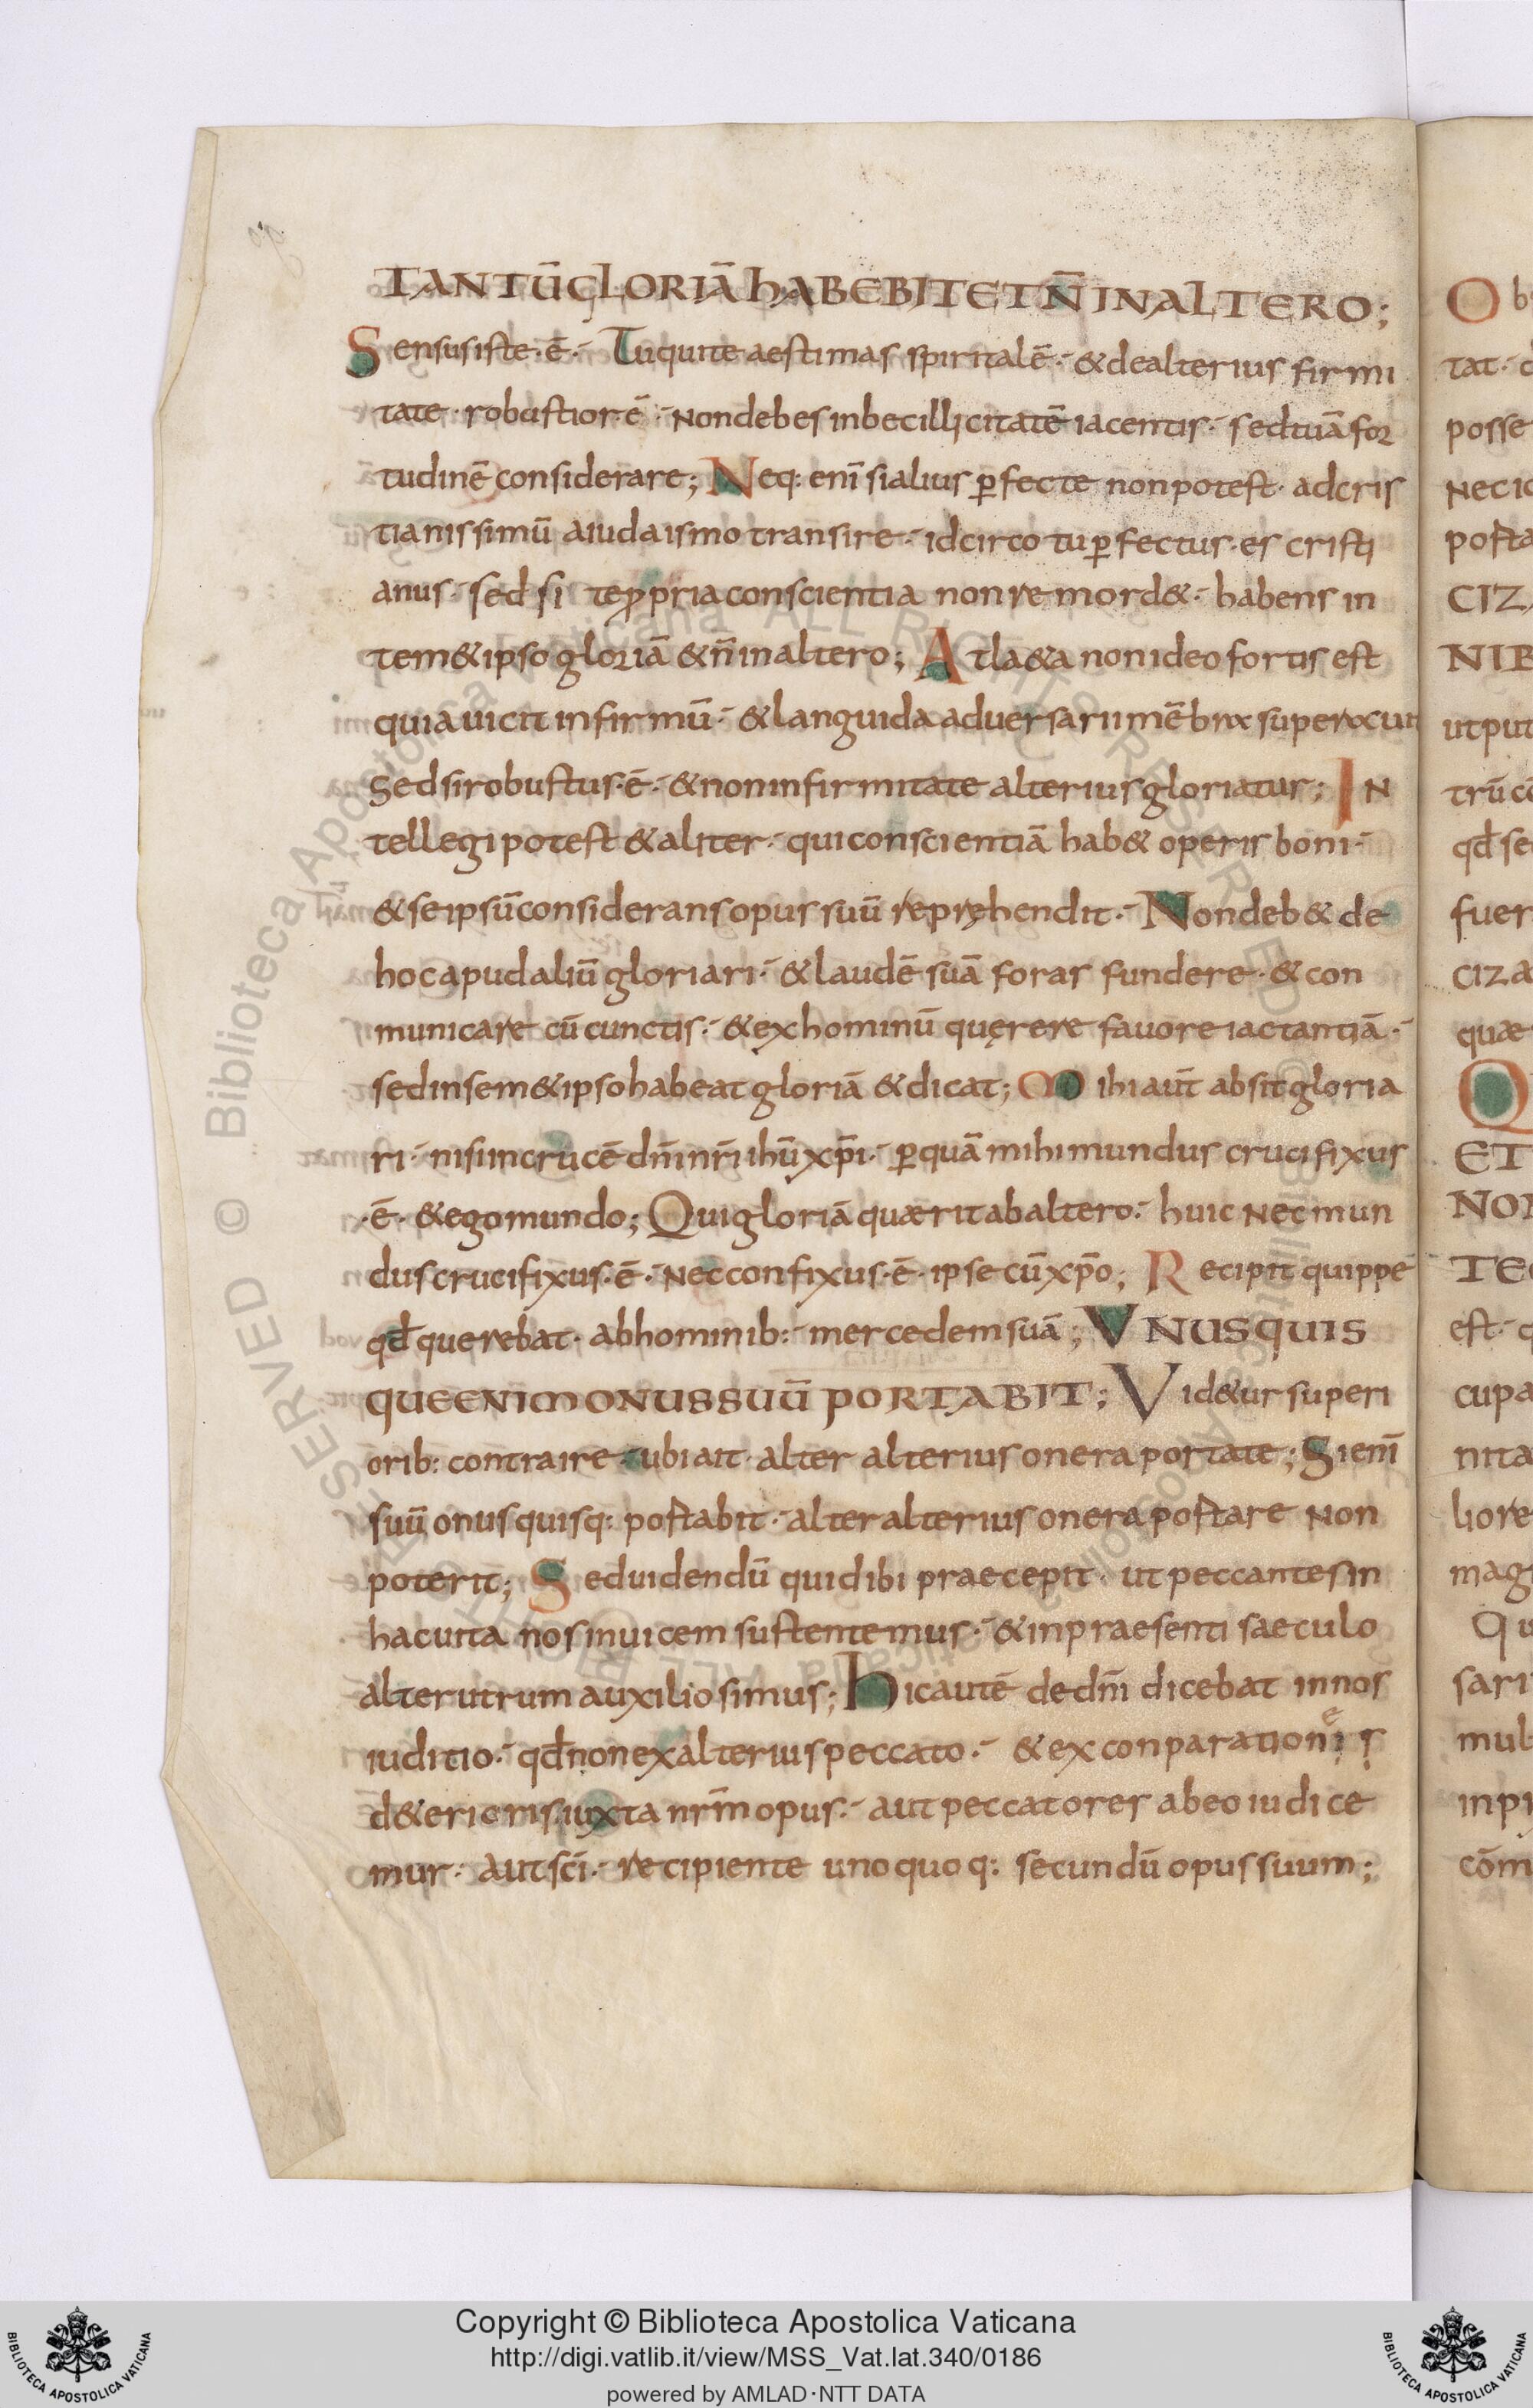 TANTŪ GLORIĀ hABEBIT ET N̄ IN ALTERO;
Sensus iste · ē ·- Tu qui te aestimas spiritalē ·- & de alterius firmi
tate · robustior · ē ·- Non debes inbecillicitatē iacentis ·- sed tuā for
tudinē considerare; Neq: enī si alius ꝑfecte non potest · ad cris
tianissimū a iudaismo transire ·- idcirco tu ꝑfectus · es cristi
anus · sed si te ꝓpria conscientia non remord& ·- habens in
tem&ipso gloriā & n̄ in altero; Atla&a non ideo fortis est
quia uicit infirmū ·- & languida aduersarii mēbra superauit
Sed si robustus · ē ·- & non infirmitate alterius gloriatus; IN
tellegi potest & aliter ·- qui conscientiā hab& operis boni ·-
& se ipsū considerans opus suū repręhendit ·- Non deb& de
hoc apud aliū gloriari ·- & laudē suā foras fundere · & con
municare cū cunctis ·- & ex hominū quęrere fauore iactantiā ·-
sed in sem&ipso habeat gloriā & dicat; Mihi aūt absit gloria
ri ·- nisi in crucē dn̄i nr̄i ihū xp̄i ·- ꝑ quā mihi mundus crucifixus
· ē · & ego mundo; Qui gloriā quærit ab altero ·- huic nec mun
dus crucifixus · ē · nec confixus · ē · ipse cū xp̄o; Recipit quippe
qd̄ querebat · ab hominib: ·- mercedem suā; VNUSQUIS
QUE ENIM ONUS SUŪ PORTABIT; Vid&ur superi
orib: contraire · ubi ait · alter alterius onera portate; Si enī
suū onus quisq: postabit ·- alter alterius onera postare non
poterit; Sed uidendū quid ibi praecepit · ut peccantes in
hac uita nos inuicem sustentemus ·- & in praesenti saeculo
alterutrum auxilio simus; hic autē de dn̄i dicebat in nos
iuditio ·- qd̄ non ex alterius peccato ·- & ex conparationeis
d&erioris · iuxta nr̄m opus ·- aut peccatores ab eo iudice
mur · aut sc̄i ·- recipiente uno quoq: secundū opus suum;
Copyright © Biblioteca Apostolica Vaticana
http://digi.vatlib.it/view/MSS_Vat.lat.340/0186
powered by AMLAD·NTT DATA